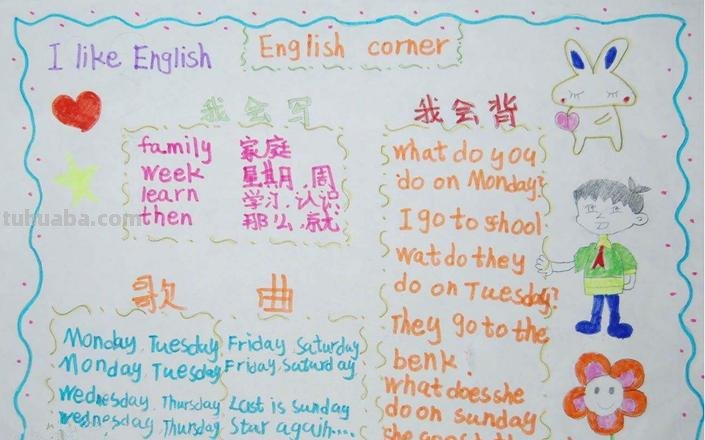 I like English
English corner
我会写
family 家庭
week 星期,周
learn 学习,认识
then 那么,就
我会背
what do you
do on Monday?
I go to shool
wat do they
do on Tuesday?
They go to the
benk.
what does she
do on sunday
she goes t
歌 曲
Monday Tuesday Friday Saturday
Monday Tuesday Friday Saturday
Wednesday Thursday Last is sunday
Wednesday Thursday Star again....
tuhuaba.com